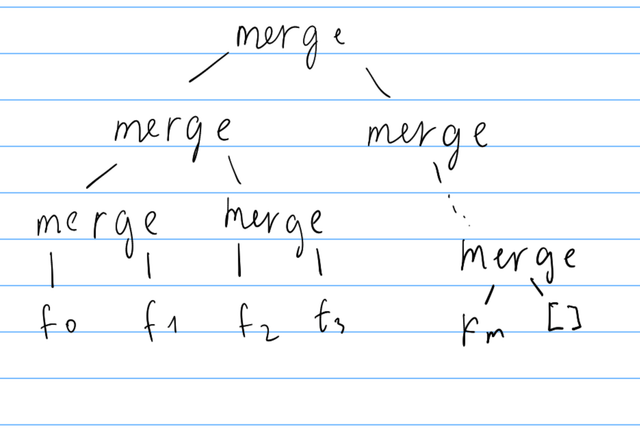 merge
merge merge
merge merge
merge
f0 f1 f2 t3
rm []